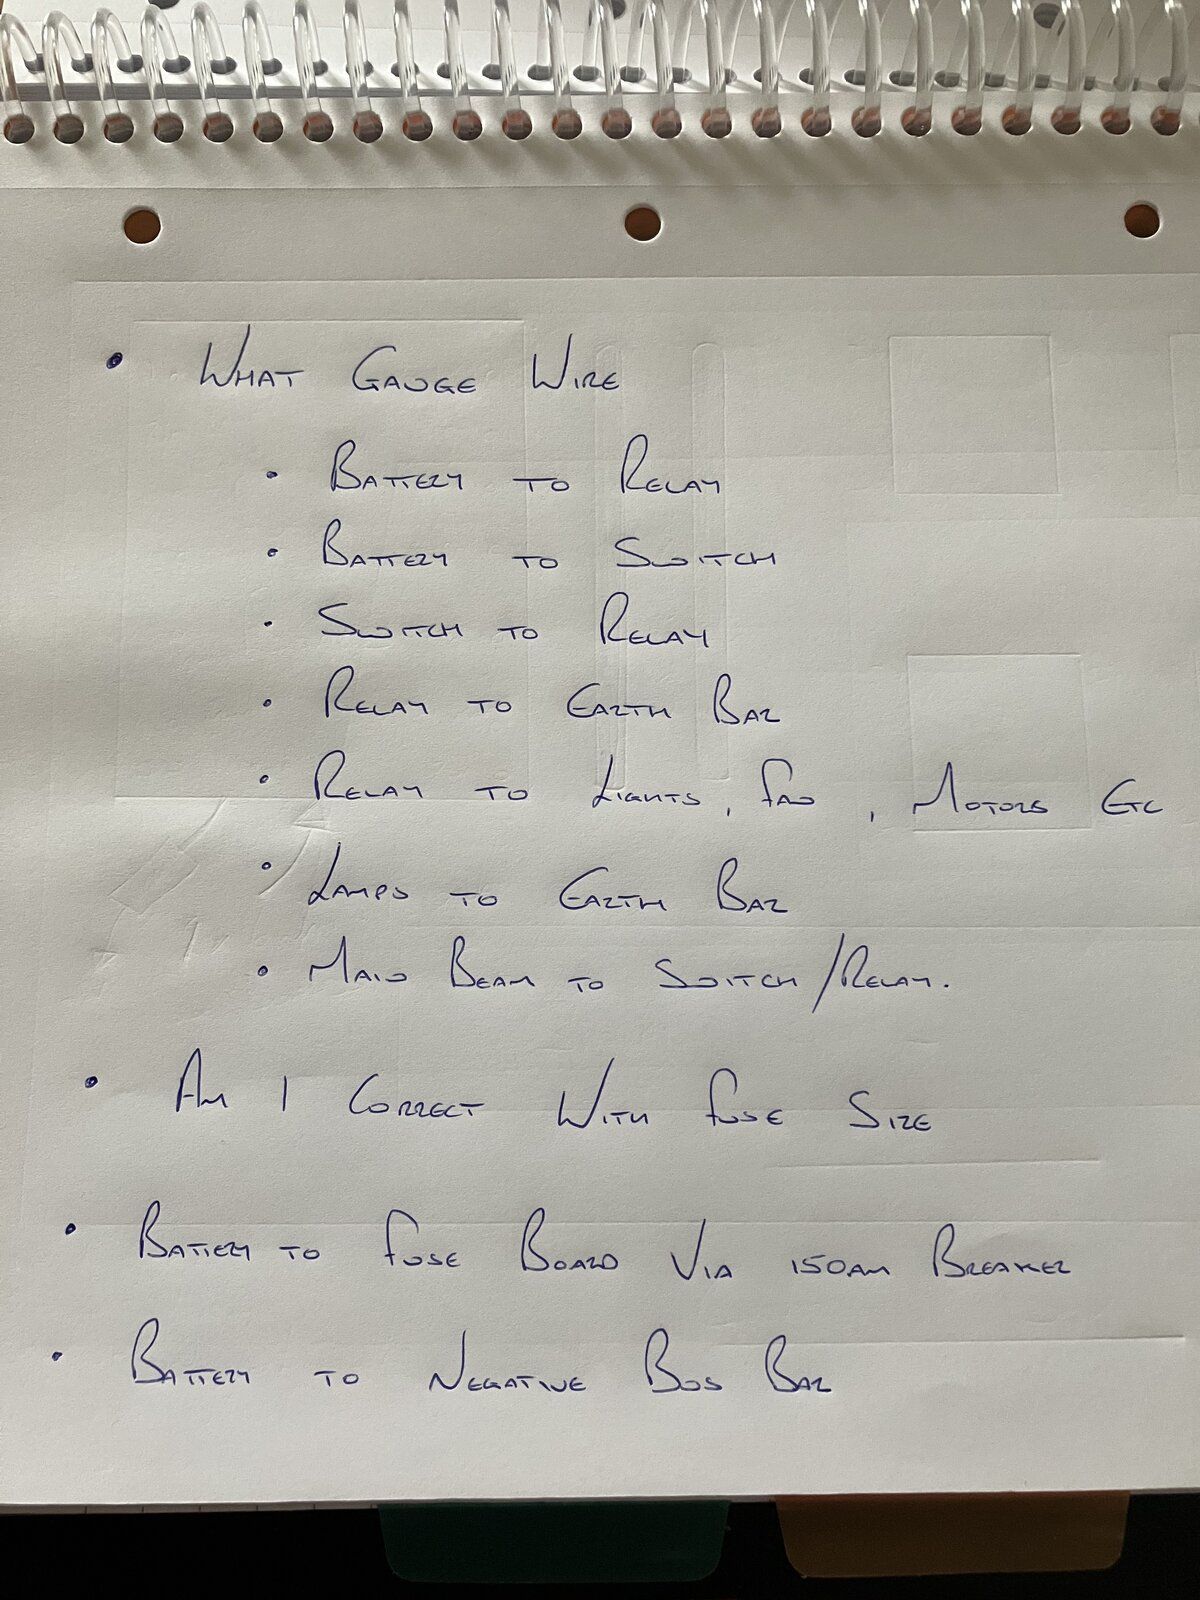 • What Gauge Wire
• Battery to Relay
• Battery to Switch
• Switch to Relay
• Relay to Earth Bar
• Relay to Lights, Fan, Motors Etc
• Lamps to Earth Bar
• Main Beam to Switch/Relay.
• Am I Correct With Fuse Size
• Battery to Fuse Board Via 150am Breaker
• Battery to Negative Bus Bar